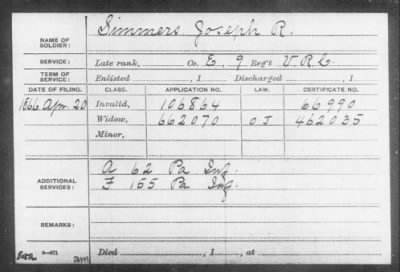 NAME OF SOLDIER: Simmers Joseph R.
SERVICE: Late rank, Co. E, 9 Reg't V.R.C.
TERM OF SERVICE: Enlisted , 1 Discharged , 1
DATE OF FILING. CLASS. APPLICATION NO. LAW. CERTIFICATE NO.
1866 Apr. 20 Invalid, 106864 66990
Widow, 662070 O J 462035
Minor,
ADDITIONAL SERVICES: A 62 Pa Inf.
F 155 Pa Inf.
REMARKS:
Died , 1 , at